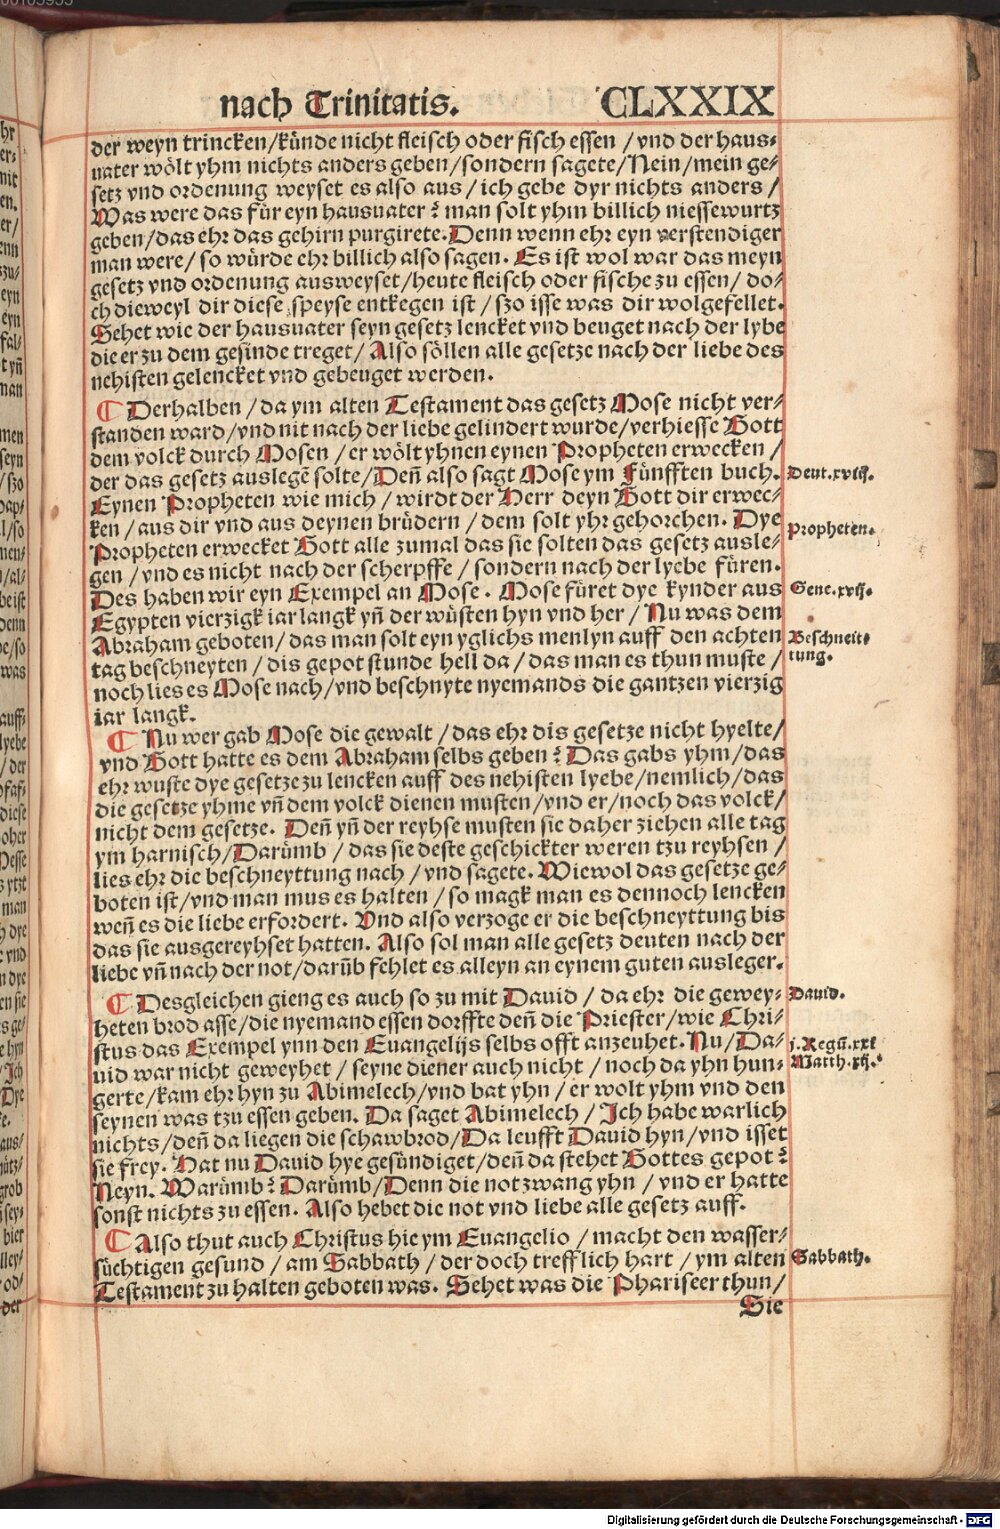 nach Trinitatis. CLXXIX
der weyn trincken/künde nicht fleisch oder fisch essen/vnd der haus-
uater wölt yhm nichts anders geben/sondern sagete/Nein/mein ge-
setz vnd ordenung weyset es also aus/ich gebe dyr nichts anders/
Was were das für eyn hausuater? man solt yhm billich niessewurtz
geben/das ehr das gehirn purgirete. Denn wenn ehr eyn verstendiger
man were/so würde ehr billich also sagen. Es ist wol war das meyn
gesetz vnd ordenung ausweyset/heute fleisch oder fische zu essen/do-
ch dieweyl dir diese speyse entkegen ist/szo isse was dir wolgefellet.
Sehet wie der hausuater seyn gesetz lencket vnd beuget nach der lybe
die er zu dem gesinde treget/Also söllen alle gesetze nach der liebe des
nehisten gelencket vnd gebeuget werden.
¶ Derhalben/da ym alten Testament das gesetz Mose nicht ver-
standen ward/vnd nit nach der liebe gelindert wurde/verhiesse Gott
dem volck durch Mosen/er wölt yhnen eynen Propheten erwecken/
der das gesetz auslegē solte/Deñ also sagt Mose ym Fünfften buch. Deut.xviij.
Eynen Propheten wie mich/wirdt der Herr deyn Gott dir erwec-
ken/aus dir vnd aus deynen brüdern/dem solt yhr gehorchen. Dye
Propheten.
Propheten erwecket Gott alle zumal das sie solten das gesetz ausle-
gen/vnd es nicht nach der scherpffe/sondern nach der lyebe füren.
Des haben wir eyn Exempel an Mose. Mose füret dye kynder aus Gene.xvij.
Egypten vierzigk iar langk yñ der wüsten hyn vnd her/Nu was dem
Abraham geboten/das man solt eyn yglichs menlyn auff den achten Beschneit-
tag beschneyten/dis gepot stunde hell da/das man es thun muste/ tung.
noch lies es Mose nach/vnd beschnyte nyemands die gantzen vierzig
iar langk.
¶ Nu wer gab Mose die gewalt/das ehr dis gesetze nicht hyelte/
vnd Gott hatte es dem Abraham selbs geben? Das gabs yhm/das
ehr wuste dye gesetze zu lencken auff des nehisten lyebe/nemlich/das
die gesetze yhme vñ dem volck dienen musten/vnd er/noch das volck/
nicht dem gesetze. Deñ yñ der reyhse musten sie daher ziehen alle tag
ym harnisch/Darümb/das sie deste geschickter weren tzu reyhsen/
lies ehr die beschneyttung nach/vnd sagete. Wiewol das gesetze ge-
boten ist/vnd man mus es halten/so magk man es dennoch lencken
weñ es die liebe erfordert. Vnd also verzoge er die beschneyttung bis
das sie ausgereyhset hatten. Also sol man alle gesetz deuten nach der
liebe vñ nach der not/darüb fehlet es alleyn an eynem guten ausleger.
¶ Desgleichen gieng es auch so zu mit Dauid/da ehr die gewey- Dauid.
heten brod asse/die nyemand essen dorffte deñ die Priester/wie Chri-
stus das Exempel ynn den Euangelijs selbs offt anzeuhet. Nu/Da- j.Regū.xxi
uid war nicht geweyhet/seyne diener auch nicht/noch da yhn hun- Matth.xij.
gerte/kam ehr hyn zu Abimelech/vnd bat yhn/er wolt yhm vnd den
seynen was tzu essen geben. Da saget Abimelech/Ich habe warlich
nichts/deñ da liegen die schawbrod/Da leufft Dauid hyn/vnd isset
sie frey. Hat nu Dauid hye gesündiget/deñ da stehet Gottes gepot?
Neyn. Warümb? Darümb/Denn die not zwang yhn/vnd er hatte
sonst nichts zu essen. Also hebet die not vnd liebe alle gesetz auff.
¶ Also thut auch Christus hie ym Euangelio/macht den wasser-
süchtigen gesund/am Sabbath/der doch trefflich hart/ym alten Sabbath.
Testament zu halten geboten was. Sehet was die Phariseer thun/
Sie
Digitalisierung gefördert durch die Deutsche Forschungsgemeinschaft - DFG